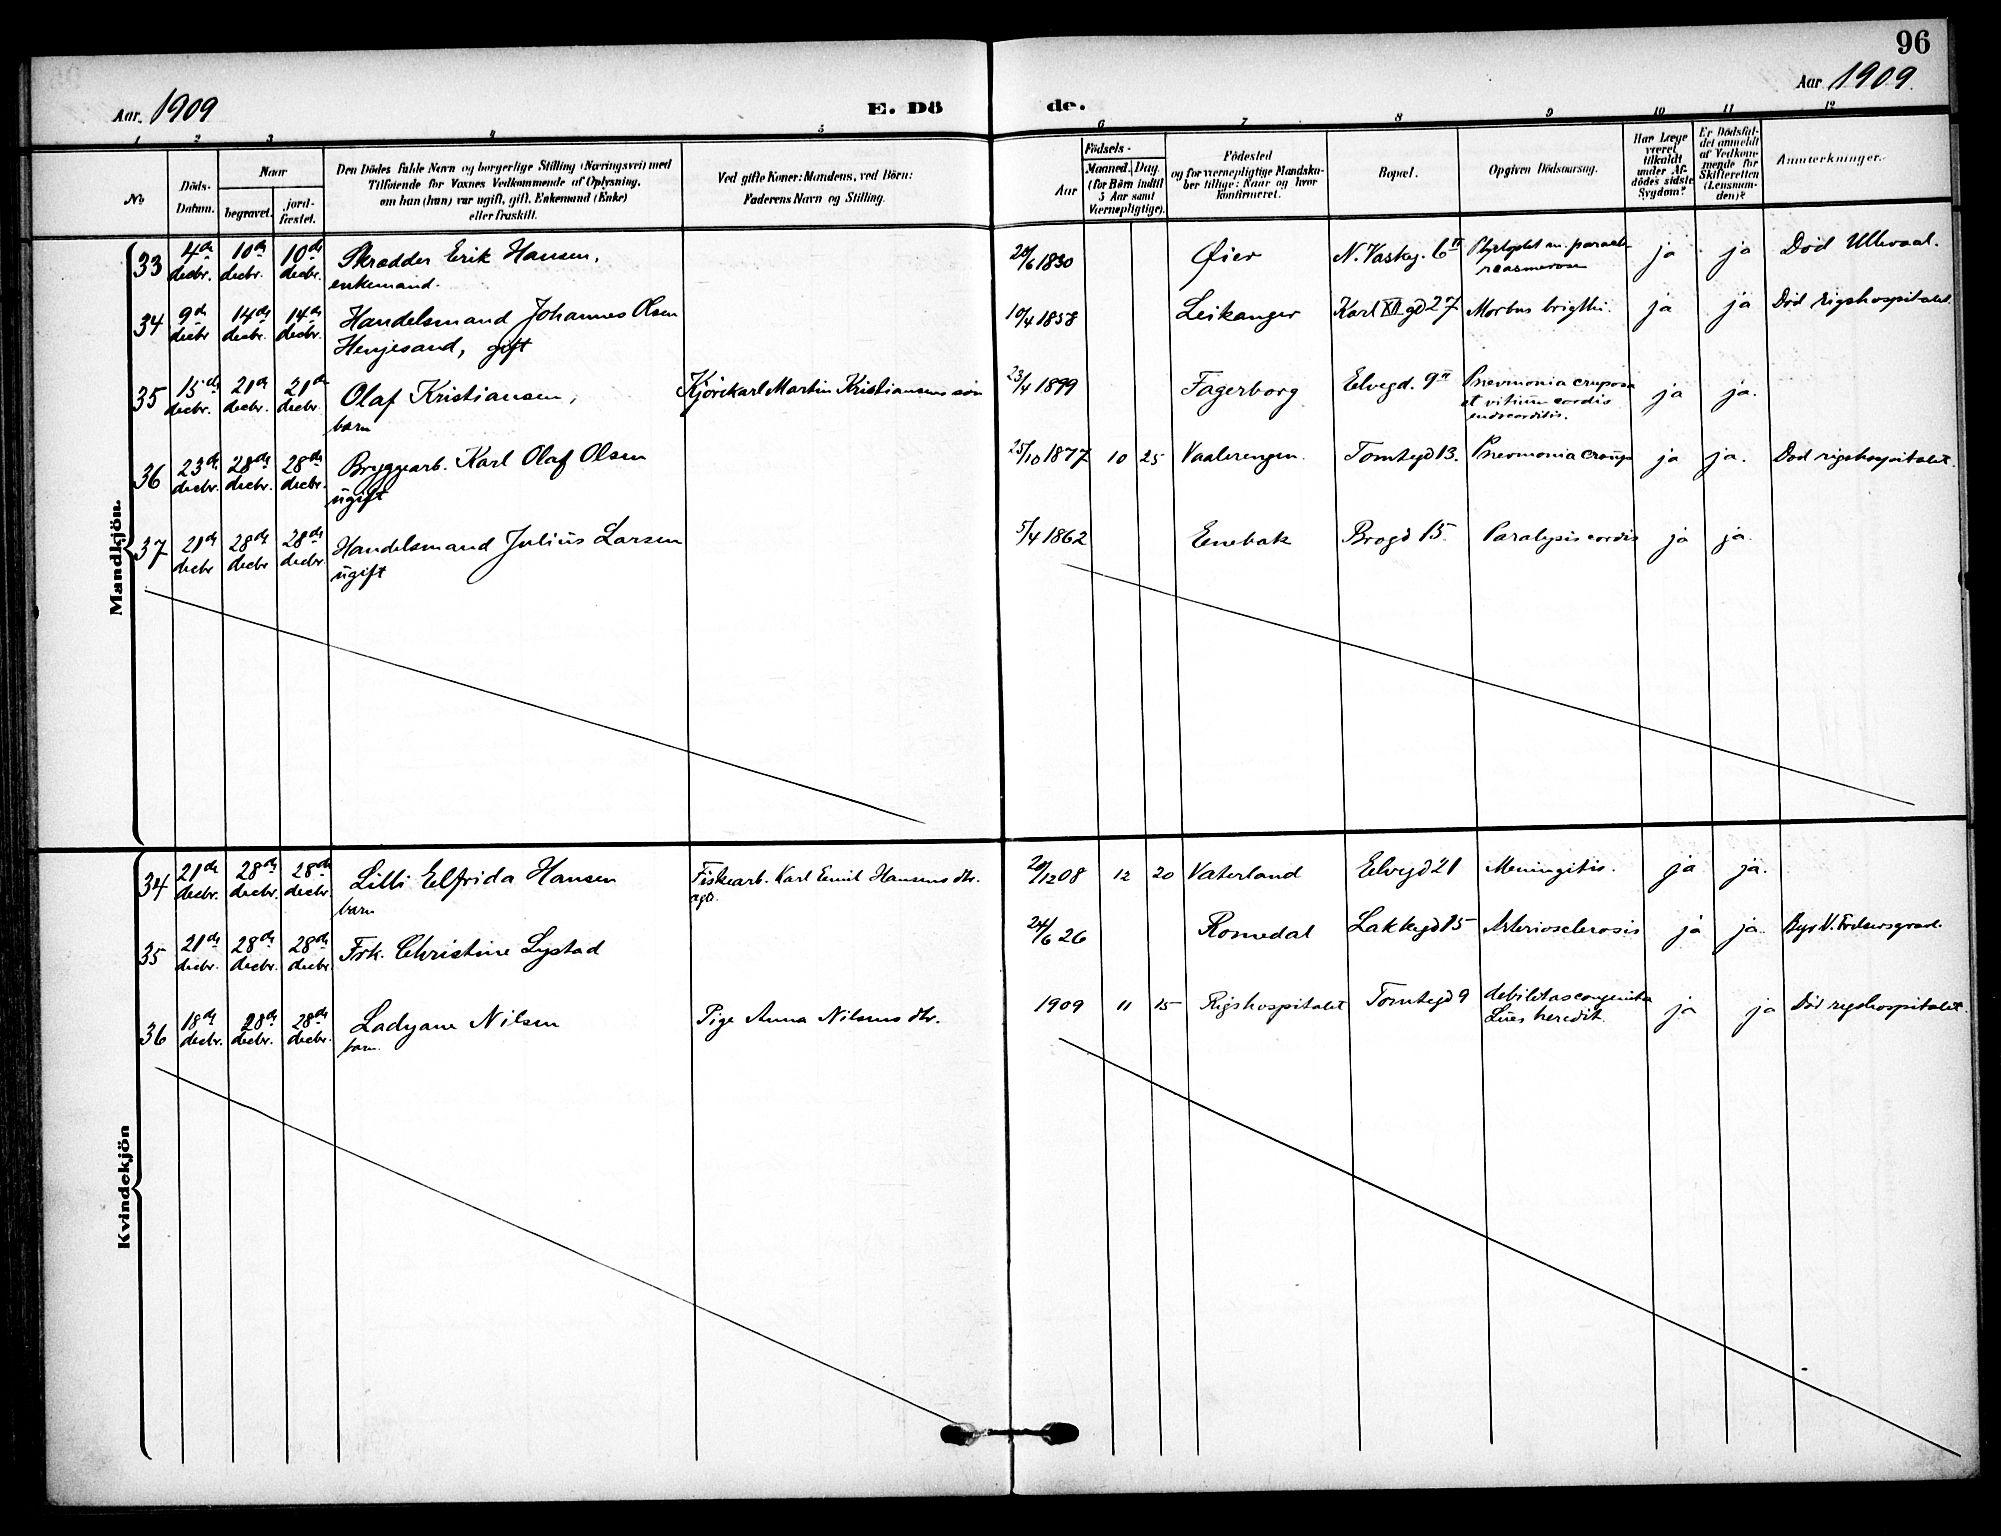 96
Aar. 1909
E. Dö
de.
Aar 1909.
1 2 3 4 5 6 7 8 9 10 11 12
No
Döds-
Datum.
Naar
begravet.
jord-
fæstet.
Den Dödes fulde Navn og borgerlige Stilling (Næringsvei) med
Tilføiende for Voxnes Vedkommende af Oplysning,
om han (hun) var ugift, gift, Enkemand (Enke)
eller fraskilt.
Ved gifte Koner: Mandens, ved Börn:
Faderens Navn og Stilling.
Födsels-
Aar
Maaned. Dag.
(for Börn indtil
5 Aar samt
Værnepligtige).
Födested
og for værnepligtige Mandska-
ber tillige: Naar og hvor
konfirmeret.
Bopæl.
Opgiven Dödsaarsag.
Har Læge
været
tilkaldt
under Af-
dödes sidste
Sygdom?
Er Dödsfal-
det anmeldt
af Vedkom-
mende for
Skifteretten
(Lensman-
den)?
Anmerkninger.
Mandkjön.
33 4de decbr. 10de decbr. 10de decbr. Skrædder Erik Hansen, enkemand. 20/6 1830 Øier N. Vaskeg. 6 II ja ja Død Ullevaal.
34 9de decbr 14de decbr. 14de decbr. Handelsmand Johannes Olsen
Henjesand, gift 10/4 1858 Leikanger Karl XII gd 27 Morbus brigthi. ja ja Død rigshospitalet
35 15de decbr. 21de decbr 21de decbr Olaf Kristiansen, barn Kjørekarl Martin Kristiansens søn 23/4 1899 Fagerborg Elvegd. 9 II Pnevmonia cruposa
et vitium cordis
endocorditis. ja ja.
36 23de decbr. 28de decbr. 28de decbr. Bryggearb. Karl Olaf Olsen
ugift 25/10 1877 10 25 Vaalerengen. Tomtegd 13. Pnevmonia croup ja ja. Død rigshospitalet.
37 21de decbr 28de decbr 28de decbr. Handelsmand Julius Larsen
ugift 5/4 1862 Enebak Brogd 15. Paralysis cordis ja ja.
Kvindekjön
34 21de decbr. 28de decbr. 28de decbr. Lilli Elfrida Hansen
barn Fiskearb. Karl Emil Hansens dtr. 20/12 08 12 20 Vaterland Elvegd 21 Meningitis. ja ja.
35 21de decbr. 28de decbr. 28de decbr. Frk. Christine Lystad 24/6 26 Romedal Lakkegd 15 Arteriosclerosis ja ja. V. Frelsersgravl.
36 18de decbr. 28de decbr. 28de decbr. Ladyane Nilsen
barn. Pige Anna Nilsens dtr. 1909 11 15 Rigshospitalet Tomtegd 9 debilitas congenita
Lues heredit. ja ja Død rigshospitalet.